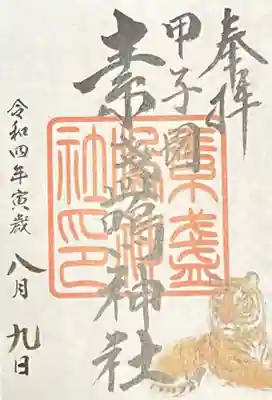 奉拝
甲子園
素盞嗚神社
令和四年寅歳
八月九日
素盞
嗚神
社印